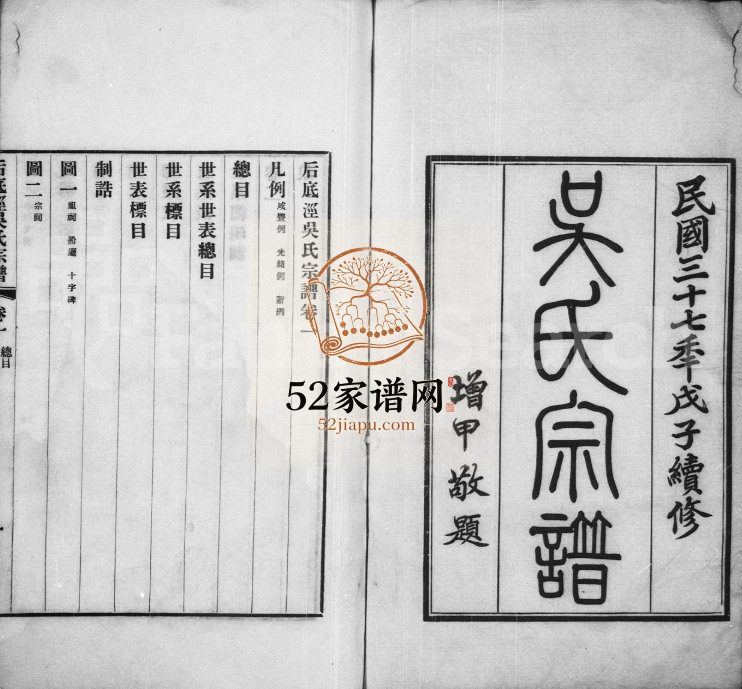 民國三十七秊戊子續修
吳氏宗譜
增甲敬題
后底涇吳氏宗譜卷一
凡例 咸豐例 光緒例 新例
總目
世系世表總目
世系標目
世表標目
制誥
圖一 祖祠 船廳 十字碑
圖二 宗祠
后底涇吳氏宗譜 卷一 總目
52家谱网
52jiapu.com